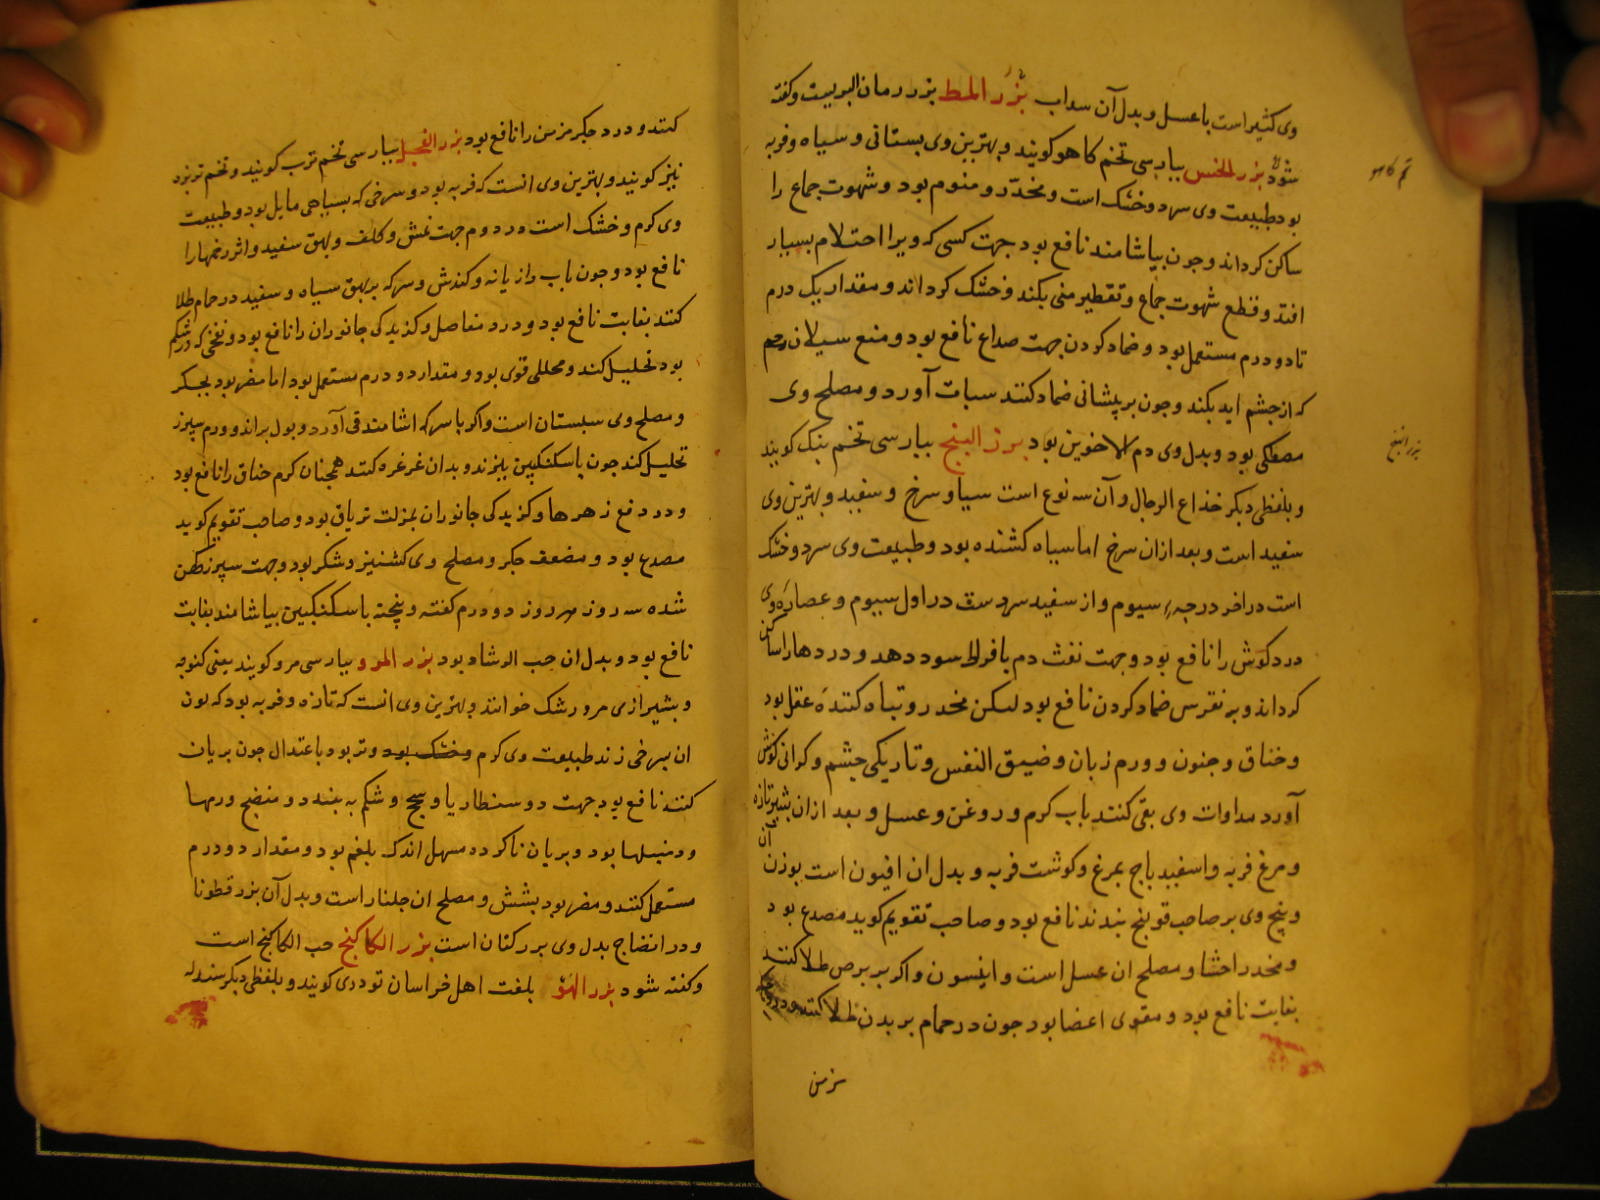 وی کثیراست با عسل و بدل آن سداب بزر المط بزر رمان البریست و کفته
شود بزر الخس بپارسی تخم کاهو کویند و بهترین وی بستانی و سیاه و فربه
تخم کاهو
بود طبیعت وی سرد و خشک است و مخدّر و منوم بود و شهوت جماع را
ساکن کرداند و چون بیاشامند نافع بود جهت کسی که ویرا احتلام بسیار
افتد و قطع شهوت جماع و تقطیر منی بکند و خشک کرداند و مقدار یک درم
تا دو درم مستعمل بود و ضماد کردن جهت صداع نافع بود و منع سیلان
که از چشم اید بکند و چون بر پیشانی ضماد کنند سبات آورد و مصلح وی
مصطکی بود و بدل وی دم الاخوین بود بزر البنج بپارسی تخم بنک کویند
بزر البنج
و بلفظی دیکر خداع الرجال و آن سه نوع است سیاه و سرخ و سفید و بهترین وی
سفید است و بعد ازان سرخ اما سیاه کشنده بود و طبیعت وی سرد و خشک
است در اخر درجه سیوم و از سفید سرد ست در اول سیوم و عصاره وی
درد کوش را نافع بود و جهت نفث دم بافراط سود دهد و دردها را ساکن
کرداند و بر نقرس ضماد کردن نافع بود لیکن مخدر و تباه کننده عقل بود
و خناق و جنون و ورم زبان و ضیق النفس و تاریکی چشم و کرانی کوش
آورد مداوات وی بقی کنند باب کرم و روغن و عسل و بعد ازان بشیر تازه
و مرغ فربه و اسفیدباج بمرغ و کوشت فربه و بدل ان افیون است بوزن آن
و بیخ وی بر صاحب قولنج بندند نافع بود و صاحب تقویم کوید مصدع بود
و مخدر احشا و مصلح ان عسل است و انیسون و اکر بر برص طلا کنند
بغایت نافع بود و مقوی اعضا بود چون در حمام بر بدن طلا کنند و درد
کنند و درد جکر مزمن را نافع بود بزر الفجل بپارسی تخم ترب کویند و تخم
نیز کویند و بهترین وی انست که فربه بود و سرخی که بسیاهی مایل بود و طبیعت
وی کرم و خشک است در دوم جهت نمش و کلف و بهق سفید و اثر زخمها را
نافع بود و چون باب رازیانه و کندش و سرکه بر بهق سیاه و سفید در حمام طلا
کنند بغایت نافع بود و درد مفاصل و کزیدکی جانوران را نافع بود و نفخی که در شکم
بود تحلیل کند و محللی قوی بود و مقدار دو درم مستعمل بود اما مضر بود بجکر
و مصلح وی سبستان است و اکر با سرکه اشامند قی آورد و بول براند و ورم سپرز
تحلیل کند چون باسکنکبین بپزند و بدان غرغره کنند همچنان کرم خناق را نافع بود
و در دفع زهرها و کزیدکی جانوران بمنزلت تریاق بود و صاحب تقویم کوید
مصدع بود و مضعف جکر و مصلح وی کشنیز و شکر بود و جهت سپرز
شده سه روز هر روز دو درم کفته و پخته باسکنکبین بیاشامند بغایت
نافع بود و بدل ان حب الرشاد بود بزر المرو بپارسی مرو کویند یعنی کنوچه
و بشیرازی مرو رشک خوانند و بهترین وی انست که تازه و فربه بود که لون
ان بسرخی زند طبیعت وی کرم و خشک بود و تر بود باعتدال چون بریان
کنند نافع بود جهت دوسنطاریا و سحج و شکم به بندد و منضج ورمها
و دنبلها بود و بریان ناکرده مسهل اندک بلغم بود و مقدار دو درم
مستعمل کنند و مضر بود بشش و مصلح ان جلنار است و بدل آن بزر قطونا
و در انضاج بدل وی بزر کتان است بزر الکاکنج حب الکاکنج است
و کفته شود بزر الهوّ بلغت اهل خراسان تودری کویند و بلفظی دیکر